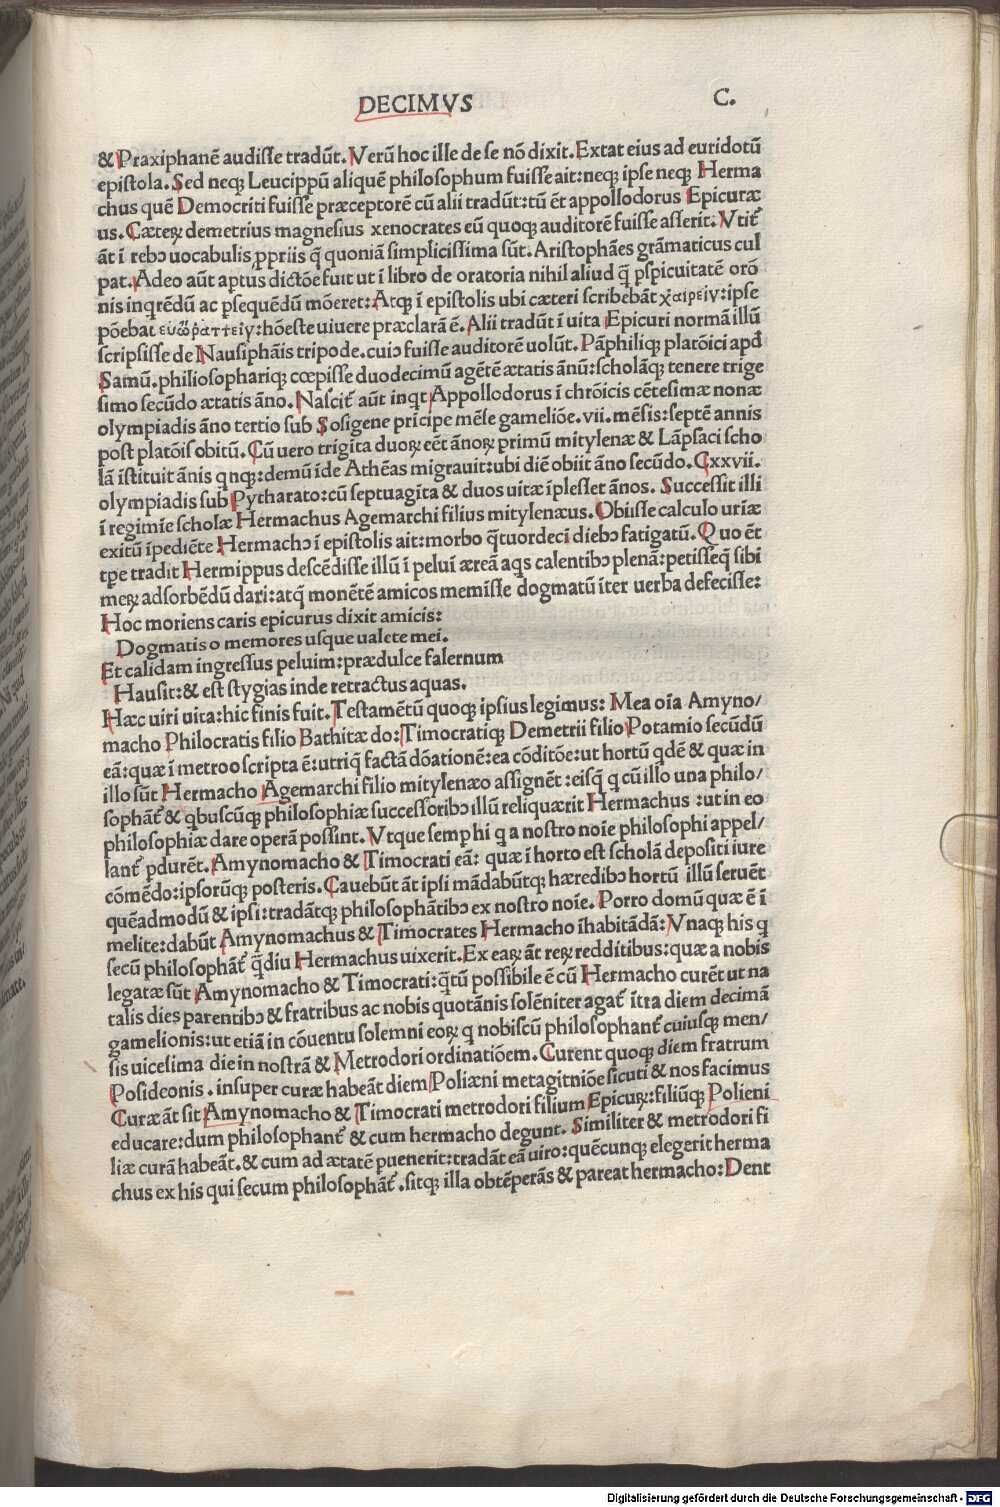 DECIMVS
C.
& Praxiphanē audisse tradūt. Verū hoc ille de se nō dixit. Extat eius ad euridotū
epistola. Sed neqꝫ Leucippū aliquē philosophum fuisse ait: neqꝫ ipse neqꝫ Herma
chus quē Democriti fuisse præceptorē cū alii tradūt: tū ēt appollodorus Epicuræ
us. Cæteꝝ demetrius magnesius xenocrates eū quoqꝫ auditorē fuisse asserit. Vtit᷑
āt ī rebꝰ uocabulis ꝓpriis q̄ quoniā simplicissima sūt. Aristophāes grāmaticus cul
pat. Adeo aūt aptus dictōe fuit ut ī libro de oratoria nihil aliud q̄ ꝑspicuitatē orō
nis inqrēdū ac ꝑsequēdū mōeret: Atqꝫ ī epistolis ubi cæteri scribebāt χαιρειν: ipse
pōebat ευωραττειν: hōeste uiuere præclarā ē. Alii tradūt ī uita Epicuri normā illū
scripsisse de Nausiphāis tripode. cuiꝰ fuisse auditorē uolūt. Pāphiliqꝫ platōici apđ
Samū. philiosophariqꝫ cœpisse duodecimū agētē ætatis ānū: scholāqꝫ tenere trige
simo secūdo ætatis āno. Nascit᷑ aūt inqt Appollodorus ī chrōicis cētesimæ nonæ
olympiadis āno tertio sub Sosigene prīcipe mēse gameliōe. vii. mēsis: septē annis
post platōis obitū. Cū uero trigīta duoꝝ eēt ānoꝝ primū mitylenæ & Lāpsaci scho
lā īstituit ānis qnqꝫ: demū īde Athēas migrauit: ubi diē obiit āno secūdo. Cxxvii.
olympiadis sub Pytharato: cū septuagīta & duos uitæ īplesset ānos. Successit illi
ī regimīe scholæ Hermachus Agemarchi filius mitylenæus. Obiisse calculo uriæ
exitū īpediēte Hermachꝰ ī epistolis ait: morbo q̄tuordeci diebꝰ fatigatū. Quo ēt
tꝑe tradit Hermippus descēdisse illū ī peluī æreā aqs calentibꝰ plenā: petisseq̄ sibi
meꝝ adsorbēdū dari: atq̄ monētē amicos memīsse dogmatū īter uerba defecisse:
Hoc moriens caris epicurus dixit amicis:
Dogmatis o memores usque ualete mei.
Et calidam ingressus peluim: prædulce falernum
Hausit: & est stygias inde retractus aquas.
Hæc uiri uita: hic finis fuit. Testamētū quoqꝫ ipsius legimus: Mea oīa Amyno/
macho Philocratis filio Bathitæ do: Timocratiqꝫ Demetrii filio Potamio secūdū
eā: quæ ī metroo scripta ē: utriq̄ factā dōationē: ea cōditōe: ut hortū qdē & quæ in
illo sūt Hermacho Agemarchi filio mitylenæo assignēt: eisq̄ q cū illo una philo/
sophāt᷑ & qbuscūqꝫ philosophiæ successoribꝰ illū reliquærit Hermachus: ut in eo
philosophiæ dare operā possint. Vtque semꝑ hi q a nostro noīe philosophi appel/
lant᷑ ꝑdurēt. Amynomacho & Timocrati eā: quæ ī horto est scholā depositi iure
cōmēdo: ipsorūqꝫ posteris. Cauebūt āt ipsi mādabūtqꝫ hæredibꝰ hortū illū seruēt
quēadmodū & ipsi: tradātqꝫ philosophātibꝰ ex nostro noīe. Porro domū quæ ē ī
melite: dabūt Amynomachus & Timocrates Hermacho īhabitādā: Vnaqꝫ his q
secū philosophāt᷑ q̄diu Hermachus uixerit. Ex eaꝝ āt reꝝ redditibus: quæ a nobis
legatæ sūt Amynomacho & Timocrati: q̄tū possibile ē cū Hermacho curēt ut na
talis dies parentibꝰ & fratribus ac nobis quotānis solēniter agat᷑ ītra diem decimā
gamelionis: ut etiā in cōuentu solemni eoꝝ q nobiscū philosophant᷑ cuiusqꝫ men/
sis uicesima die in nostrā & Metrodori ordinatiōem. Curent quoqꝫ diem fratrum
Posideonis. insuper curæ habeāt diem Poliæni metagitniōe sicuti & nos facimus
Curæ āt sit Amynomacho & Timocrati metrodori filium Epicuꝝ: filiūqꝫ Polieni
educare: dum philosophant᷑ & cum hermacho degunt. Similiter & metrodori fi
liæ curā habeāt. & cum ad ætatē ꝑuenerit: tradāt eā uiro: quēcunqꝫ elegerit herma
chus ex his qui secum philosophāt᷑. sitqꝫ illa obtēperās & pareat hermacho: Dent
Digitalisierung gefördert durch die Deutsche Forschungsgemeinschaft - DFG